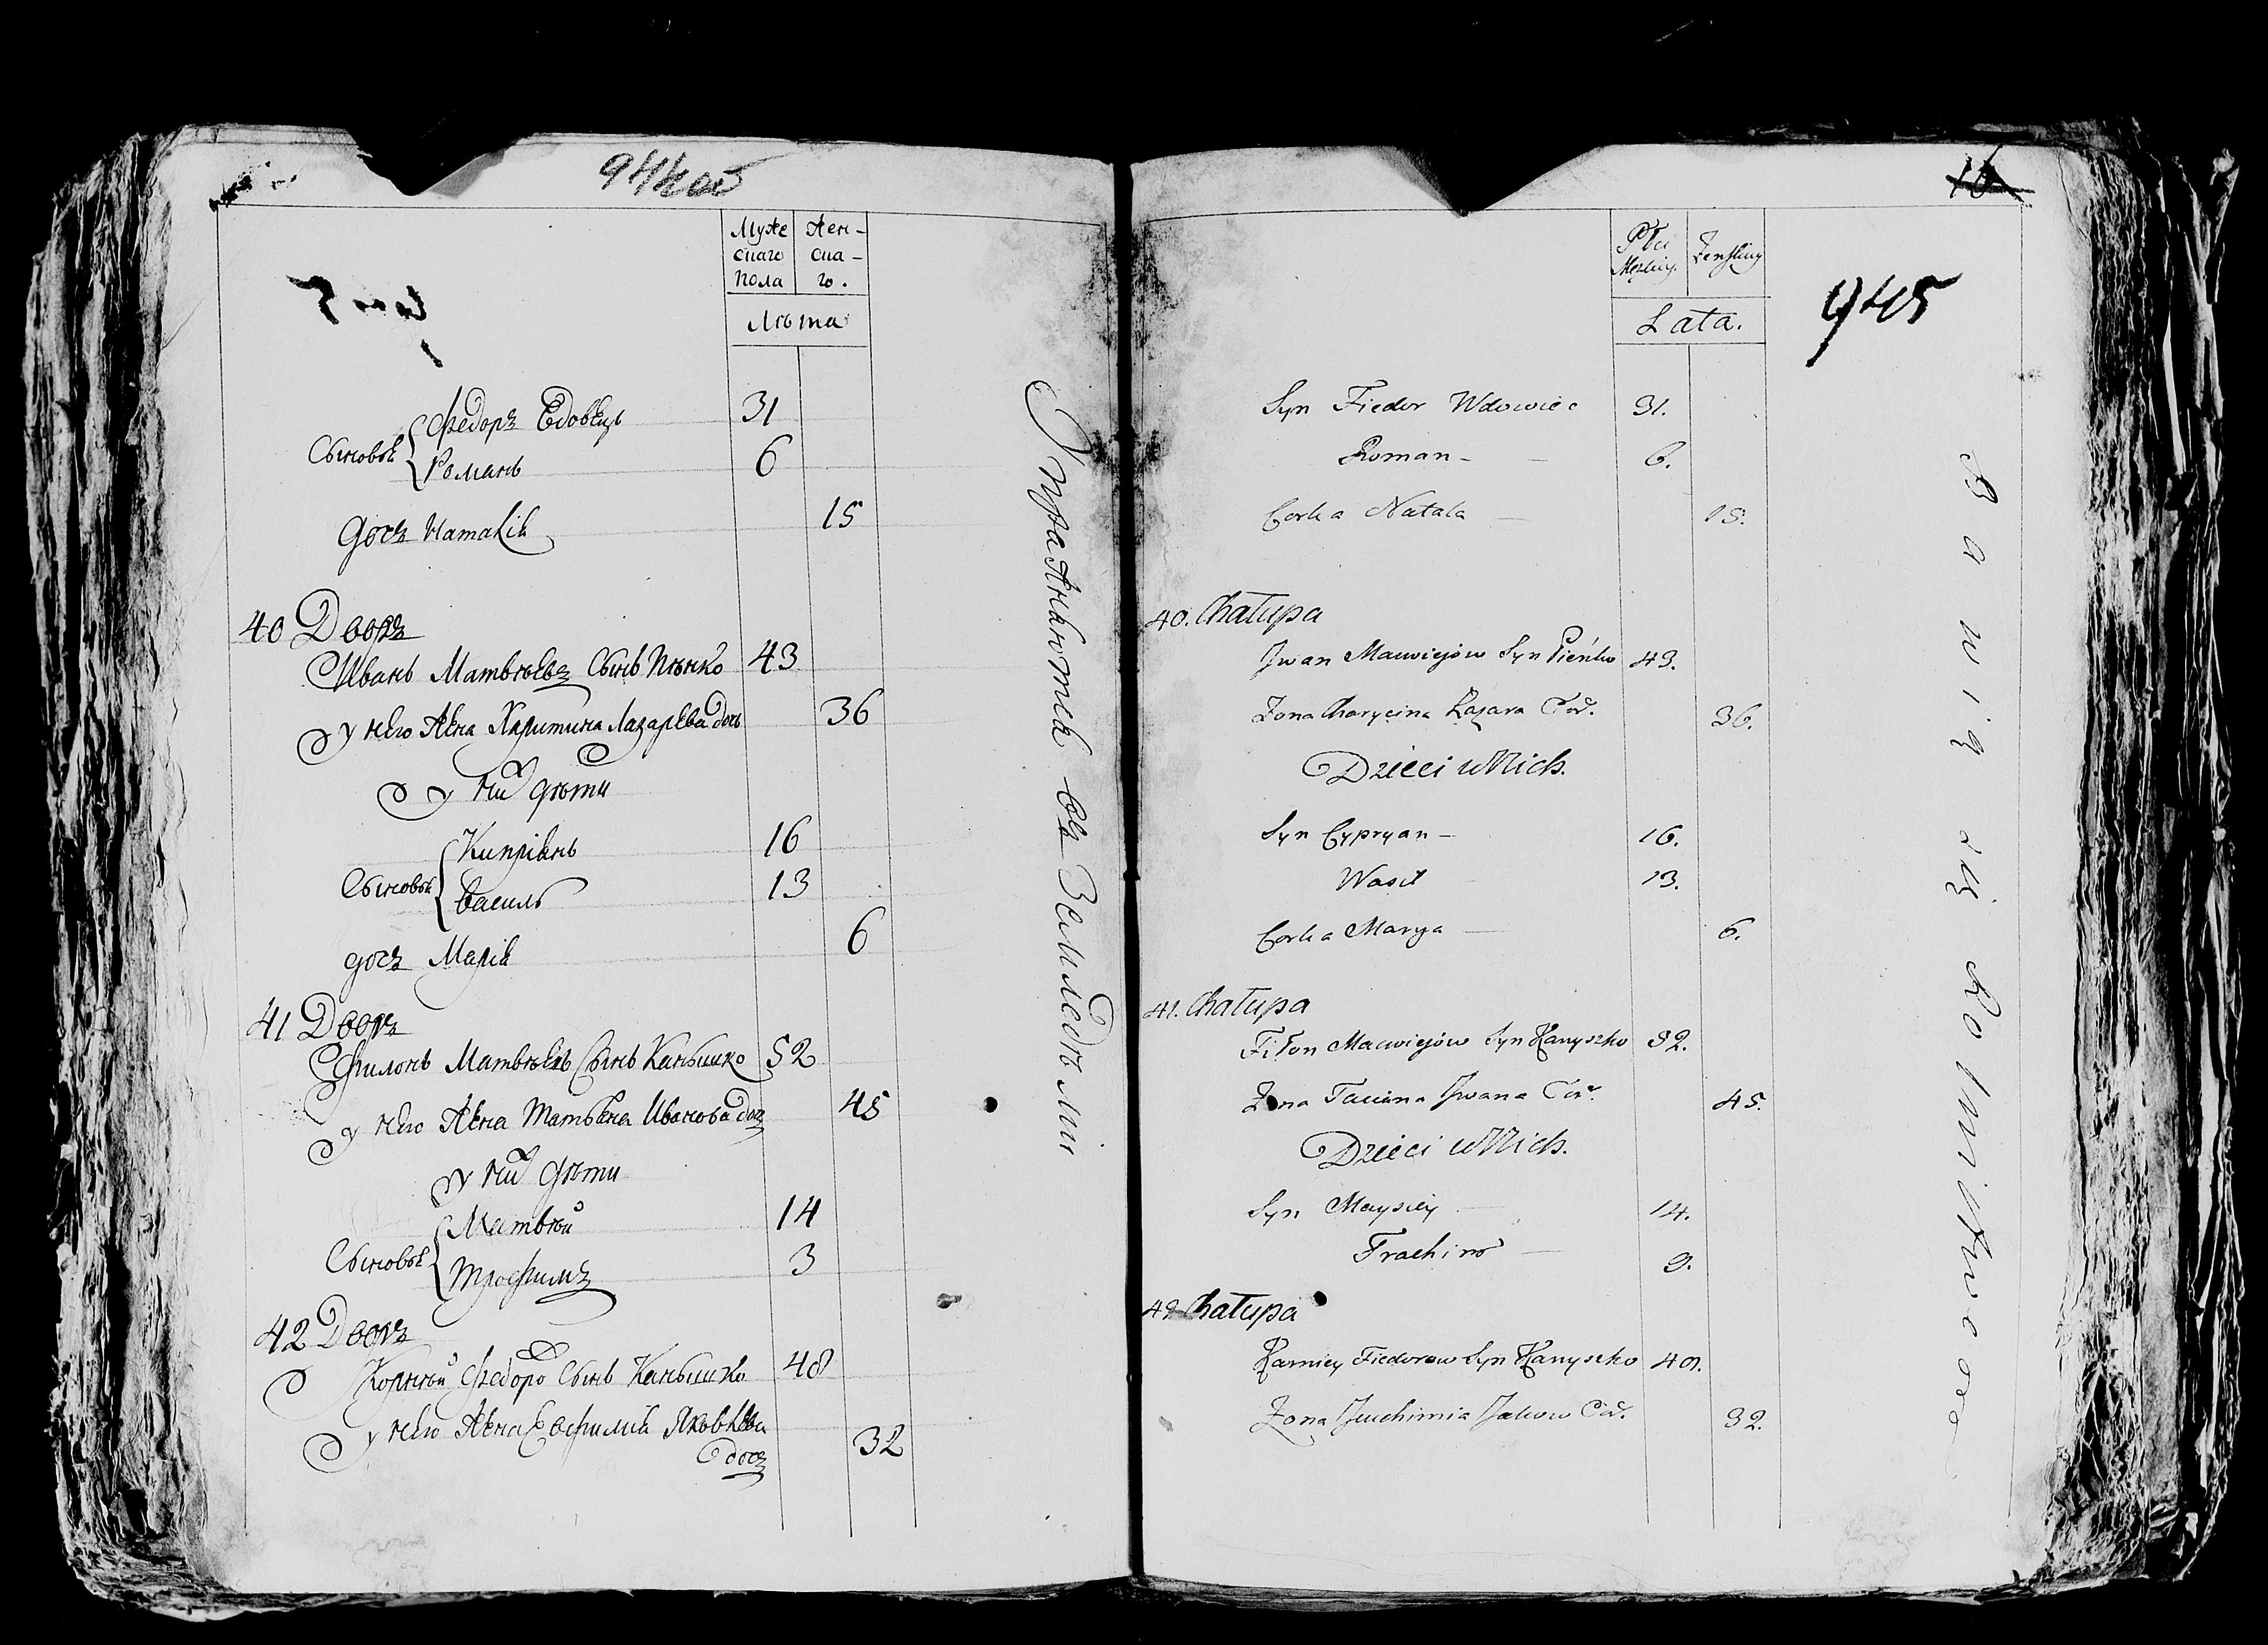 944 об
Муже
скаго
пола
Жен-
ска-
го.
Лѣта
Сыновѣ
Федоръ Вдовецъ 31
Романъ 6
дочъ Наталія 15
40 Дворъ
Иванъ Матвѣевъ Сынъ Пѣнко 43
у него Жена Харитина Лазарева дочь 36
у них дѣти
Сыновѣ
Кипріянъ 16
Василь 13
дочъ Марія 6
41 Дворъ
Филонъ Матвѣевъ Сынъ Канышко 52
у него Жена Татьяна Иванова дочъ 45
у них дѣти
Сыновѣ
Матвѣй 14
Трофимъ 3
42 Дворъ
Корнѣй Федоро Сынъ Канышко 48
у него Жена Евфимія Яковлева
дочъ 32
Упражняются въ Земледѣліи
16
945
Płci
Męzkiey.
Zenskiey
Lata.
Syn Fiedor Wdowiec 31.
Roman - 6.
Corka Natala 15.
40. Chałupa
Jwan Maciejów Syn Pieńko 43.
Zona Charycina Łazara Cór. 36.
Dzieci u Nich.
Syn Cypryan - 16.
Wasil 13.
Corka Marya 6.
41. Chałupa
Fiłon Maciejów Syn Kanyszko 52.
Zona Taciana Jwana Cór. 45.
Dzieci u Nich.
Syn Maysiey 14.
Trachim 3.
42. Chałupa
Karniey Fiedorow Syn Kanyszko 48.
Zona Jeuchimia Jakow Cór. 32.
Bawią się Rolnictwem